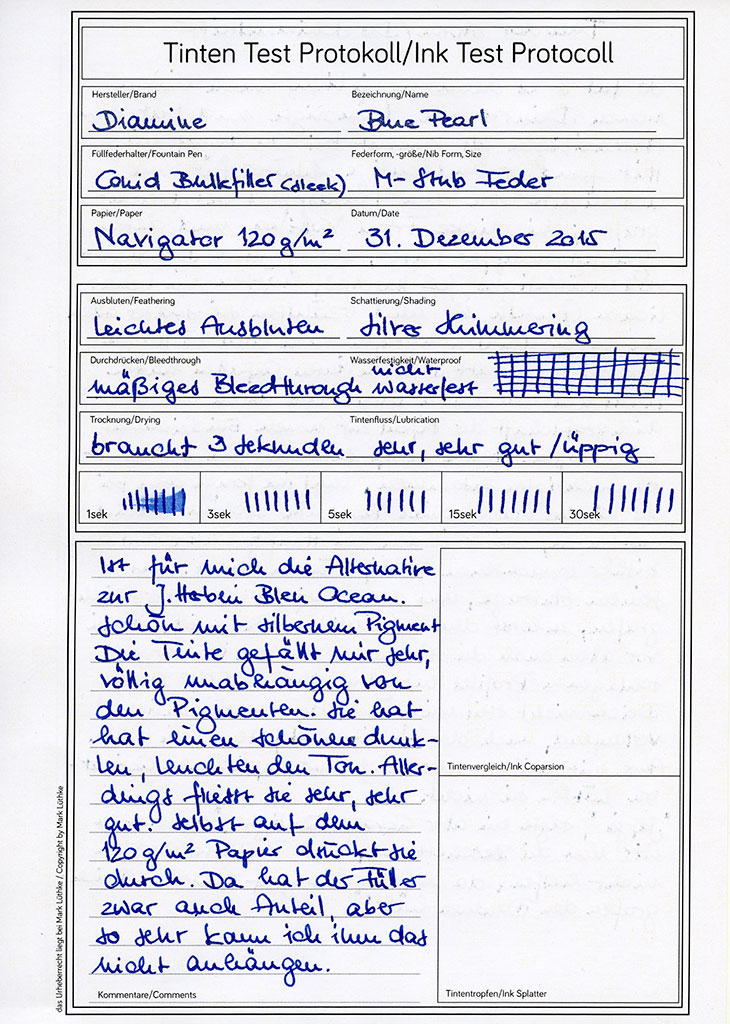 Tinten Test Protokoll/Ink Test Protocoll
Hersteller/Brand
Diamine
Bezeichnung/Name
Blue Pearl
Füllfederhalter/Fountain Pen
Conid Bulkfiller (sleek)
Federform, -größe/Nib Form, Size
M-Stub Feder
Papier/Paper
Navigator 120g/m²
Datum/Date
31. Dezember 2015
Ausbluten/Feathering
leichtes Ausbluten
Schattierung/Shading
silver shimmering
Durchdrücken/Bleedthrough
mäßiges Bleedthrough
Wasserfestigkeit/Waterproof
nicht
wasserfest
Trocknung/Drying
braucht 3 Sekunden
Tintenfluss/Lubrication
sehr, sehr gut /üppig
1sek 3sek 5sek 15sek 30sek
Ist für mich die Alternative
zur J. Herbin Bleu Ocean.
schön mit silbernem Pigment
Die Tinte gefällt mir sehr,
völlig unabhängig von
den Pigmenten. Sie hat
hat einen schönen dunk-
len, leuchtenden Ton. Aller-
dings fliesst sie sehr, sehr
gut. Selbst auf dem
120g/m² Papier drückt sie
durch. Da hat der Füller
zwar auch Anteil, aber
so sehr kann ich ihm das
nicht anhängen.
Kommentare/Comments
Tintenvergleich/Ink Coparsion
Tintentropfen/Ink Splatter
das Urheberrecht liegt bei Mark Lüthke / Copyright by Mark Lüthke